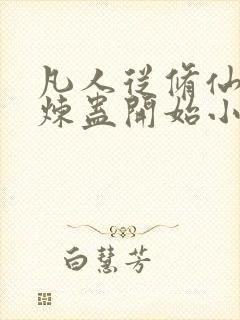 凡人従脩仙
煉蠱開始小
白慧芳